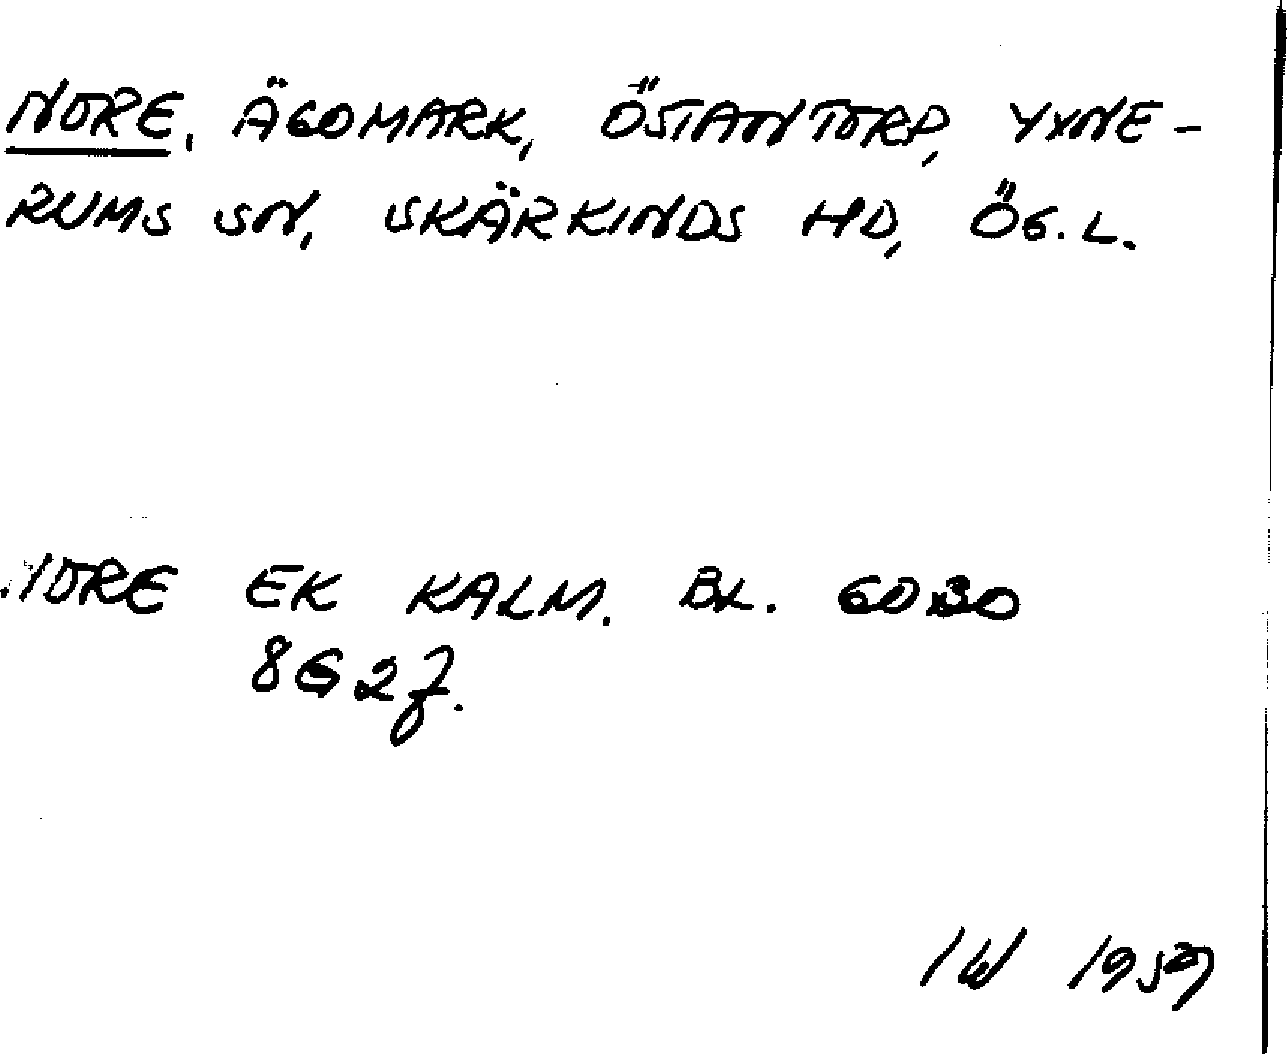 NORE, ÄGOMARK, ÖSTANTORP, YXNE-
RUMS SN, SKÄRKINDS HD, ÖG.L.
NORE EK KALM. BL. 6030
8G2f.
IW 1959